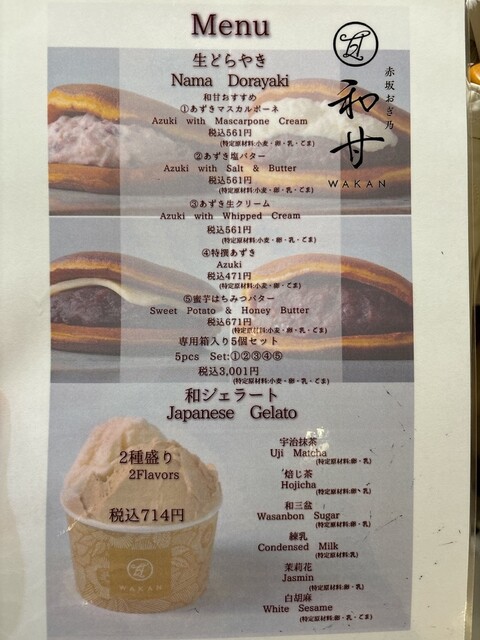 Menu
生どらやき
Nama Dorayaki
和甘おすすめ
①あずきマスカルポーネ
Azuki with Mascarpone Cream
税込561円
(特定原材料:小麦・卵・乳・ごま)
②あずき塩バター
Azuki with Salt & Butter
税込561円
(特定原材料:小麦・卵・乳・ごま)
③あずき生クリーム
Azuki with Whipped Cream
税込561円
(特定原材料:小麦・卵・乳・ごま)
④特撰あずき
Azuki
税込471円
(特定原材料:小麦・卵・ごま)
⑤蜜芋はちみつバター
Sweet Potato & Honey Butter
税込671円
(特定原材料:小麦・卵・乳・ごま)
専用箱入り5個セット
5pcs Set:①②③④⑤
税込3,001円
(特定原材料:小麦・卵・乳・ごま)
赤坂おぎ乃
和甘
WAKAN
和ジェラート
Japanese Gelato
2種盛り
2Flavors
税込714円
WAKAN
宇治抹茶
Uji Matcha
(特定原材料:卵・乳)
焙じ茶
Hojicha
(特定原材料:卵・乳)
和三盆
Wasanbon Sugar
(特定原材料:卵・乳)
練乳
Condensed Milk
(特定原材料:乳)
茉莉花
Jasmin
(特定原材料:卵・乳)
白胡麻
White Sesame
(特定原材料:卵・乳・ごま)